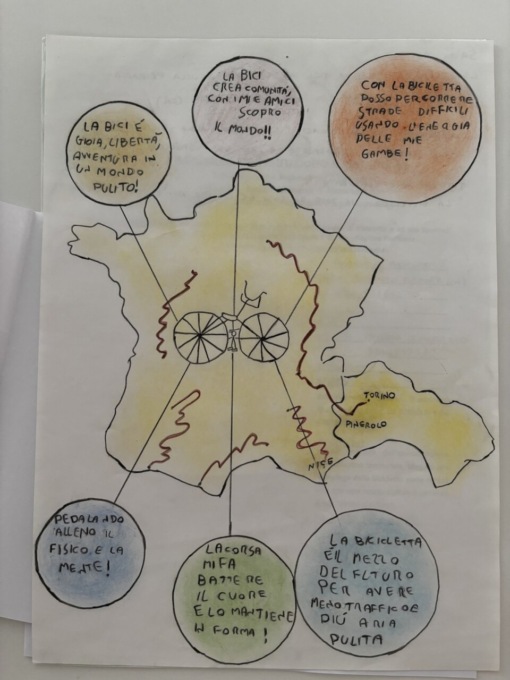 LA BICI É
GIOIA, LIBERTÀ,
AVVENTURA IN
UN MONDO
PULITO!
LA BICI
CREA COMUNITÀ,
CON I MIEI AMICI
SCOPRO
IL MONDO!!
CON LA BICICLETTA
POSSO PERCORRERE
STRADE DIFFICILI
USANDO L'ENERGIA
DELLE MIE
GAMBE!
TORINO
PINEROLO
NICE
PEDALANDO
ALLENO IL
FISICO E LA
MENTE!
LA CORSA
MI FA
BATTERE
IL CUORE
E LO MANTIENE
IN FORMA!
LA BICICLETTA
É IL MEZZO
DEL FUTURO
PER AVERE
MENO TRAFFICO E
PIÚ ARIA
PULITA